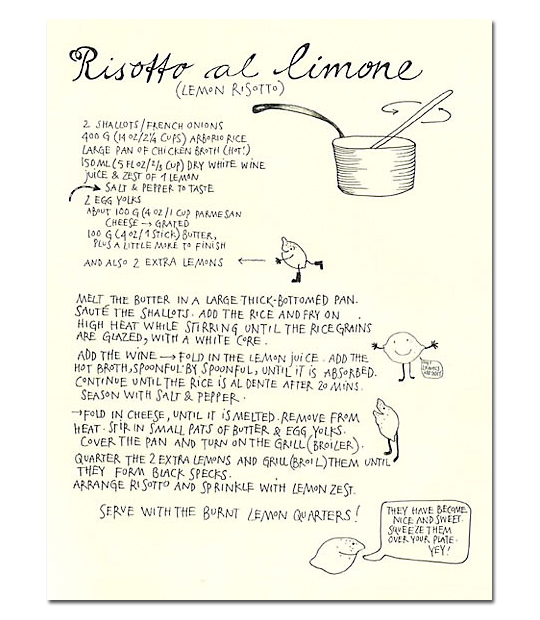 Risotto al limone
(LEMON RISOTTO)
2 SHALLOTS/FRENCH ONIONS
400 G (14 OZ/2¼ CUPS) ARBORIO RICE
LARGE PAN OF CHICKEN BROTH (HOT!)
150 ML (5 FL OZ/2/3 CUP) DRY WHITE WINE
JUICE & ZEST OF 1 LEMON
→ SALT & PEPPER TO TASTE
2 EGG YOLKS
ABOUT 100 G (4 OZ/1 CUP PARMESAN
CHEESE → GRATED
100 G (4 OZ/1 STICK) BUTTER,
PLUS A LITTLE MORE TO FINISH
AND ALSO 2 EXTRA LEMONS ←
MELT THE BUTTER IN A LARGE THICK-BOTTOMED PAN.
SAUTÉ THE SHALLOTS. ADD THE RICE AND FRY ON
HIGH HEAT WHILE STIRRING UNTIL THE RICE GRAINS
ARE GLAZED, WITH A WHITE CORE.
ADD THE WINE → FOLD IN THE LEMON JUICE. ADD THE
HOT BROTH, SPOONFUL BY SPOONFUL, UNTIL IT IS ABSORBED.
CONTINUE UNTIL THE RICE IS AL DENTE AFTER 20 MINS.
SEASON WITH SALT & PEPPER.
→ FOLD IN CHEESE, UNTIL IT IS MELTED. REMOVE FROM
HEAT. STIR IN SMALL PATS OF BUTTER & EGG YOLKS.
COVER THE PAN AND TURN ON THE GRILL (BROILER).
QUARTER THE 2 EXTRA LEMONS AND GRILL (BROIL) THEM UNTIL
THEY FORM BLACK SPECKS.
ARRANGE RISOTTO AND SPRINKLE WITH LEMON ZEST.
SERVE WITH THE BURNT LEMON QUARTERS!
THEY HAVE BECOME
NICE AND SWEET.
SQUEEZE THEM
OVER YOUR PLATE.
YEY!